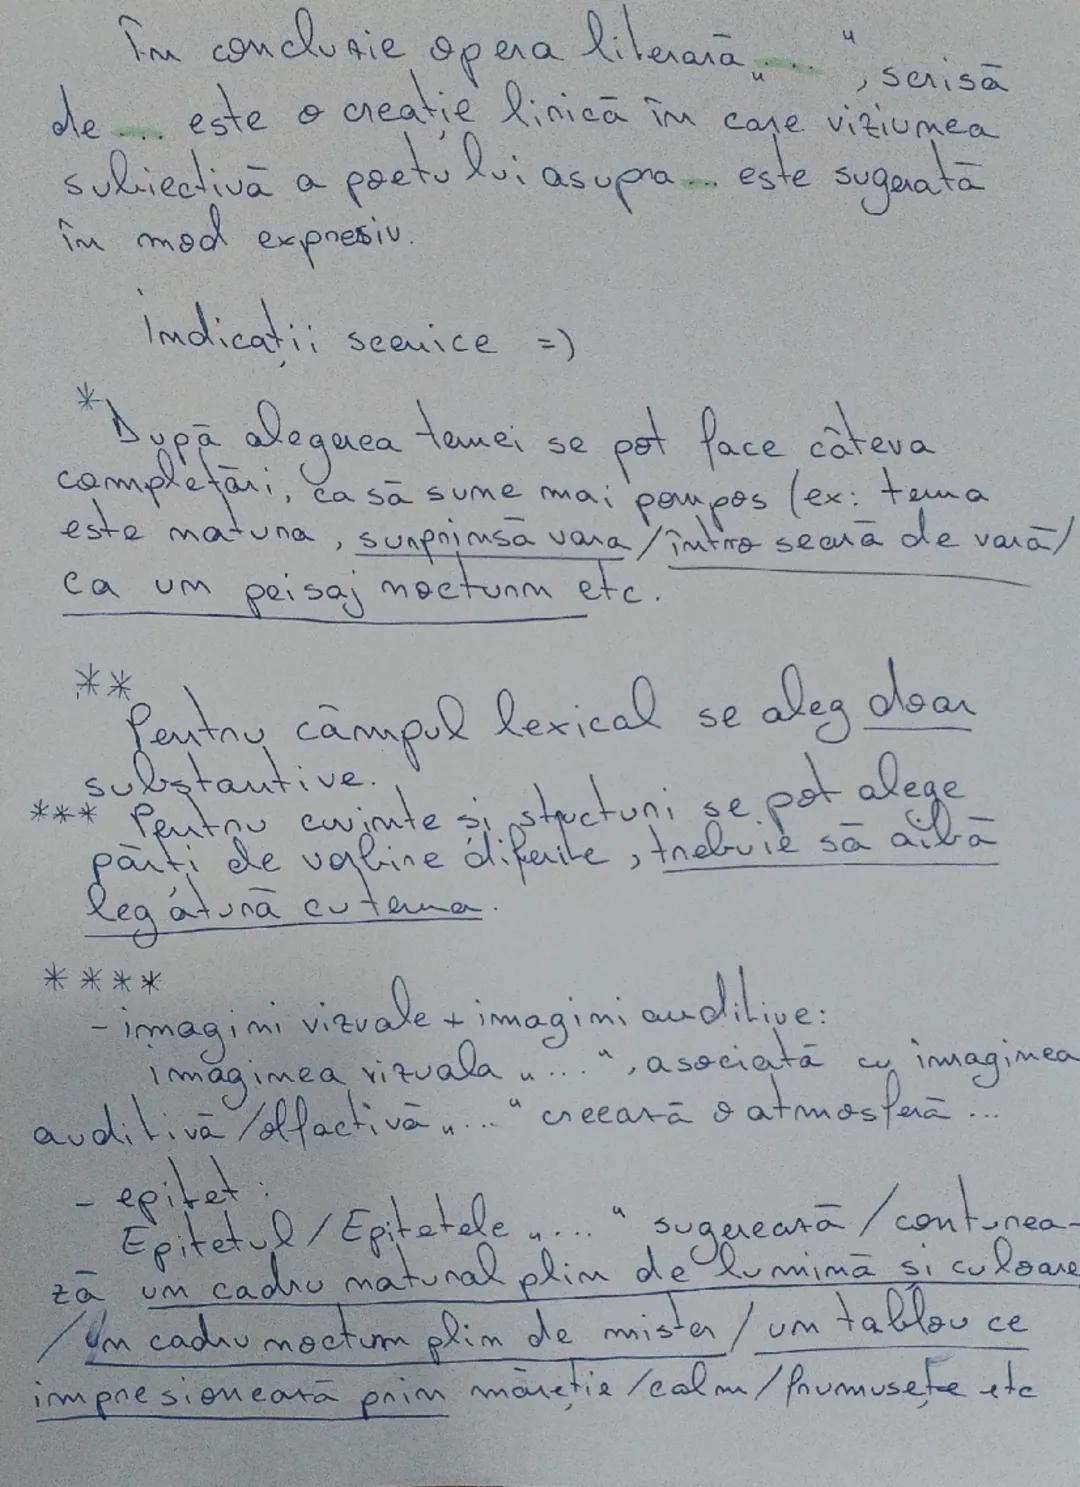 În concluzie opera literară „...", scrisă
de ... este o creație lirică în care viziunea
subiectivă a poetului asupra ... este sugerată
în mod expresiv.
Indicații scenice =)
* După alegerea temei se pot face câteva
completări, ca să sune mai pompos (ex: tema
este natura, surprinsă vara/într-o seară de vară/
ca un peisaj nocturn etc.
** Pentru câmpul lexical se aleg doar
substantive.
*** Pentru cuvinte și structuri se pot alege
părți de vorbire diferite, trebuie să aibă
legătură cu tema.
****
- imagini vizuale + imagini auditive:
imaginea vizuala „...", asociată cu imaginea
auditivă/olfactivă „..." creează o atmosferă ...
- epitet:
Epitetul/Epitetele „..." sugerează/conturea-
ză un cadru natural plin de lumină și culoare
/un cadru nocturn plin de mister/un tablou ce
impresionează prin măreție/calm/frumusețe etc